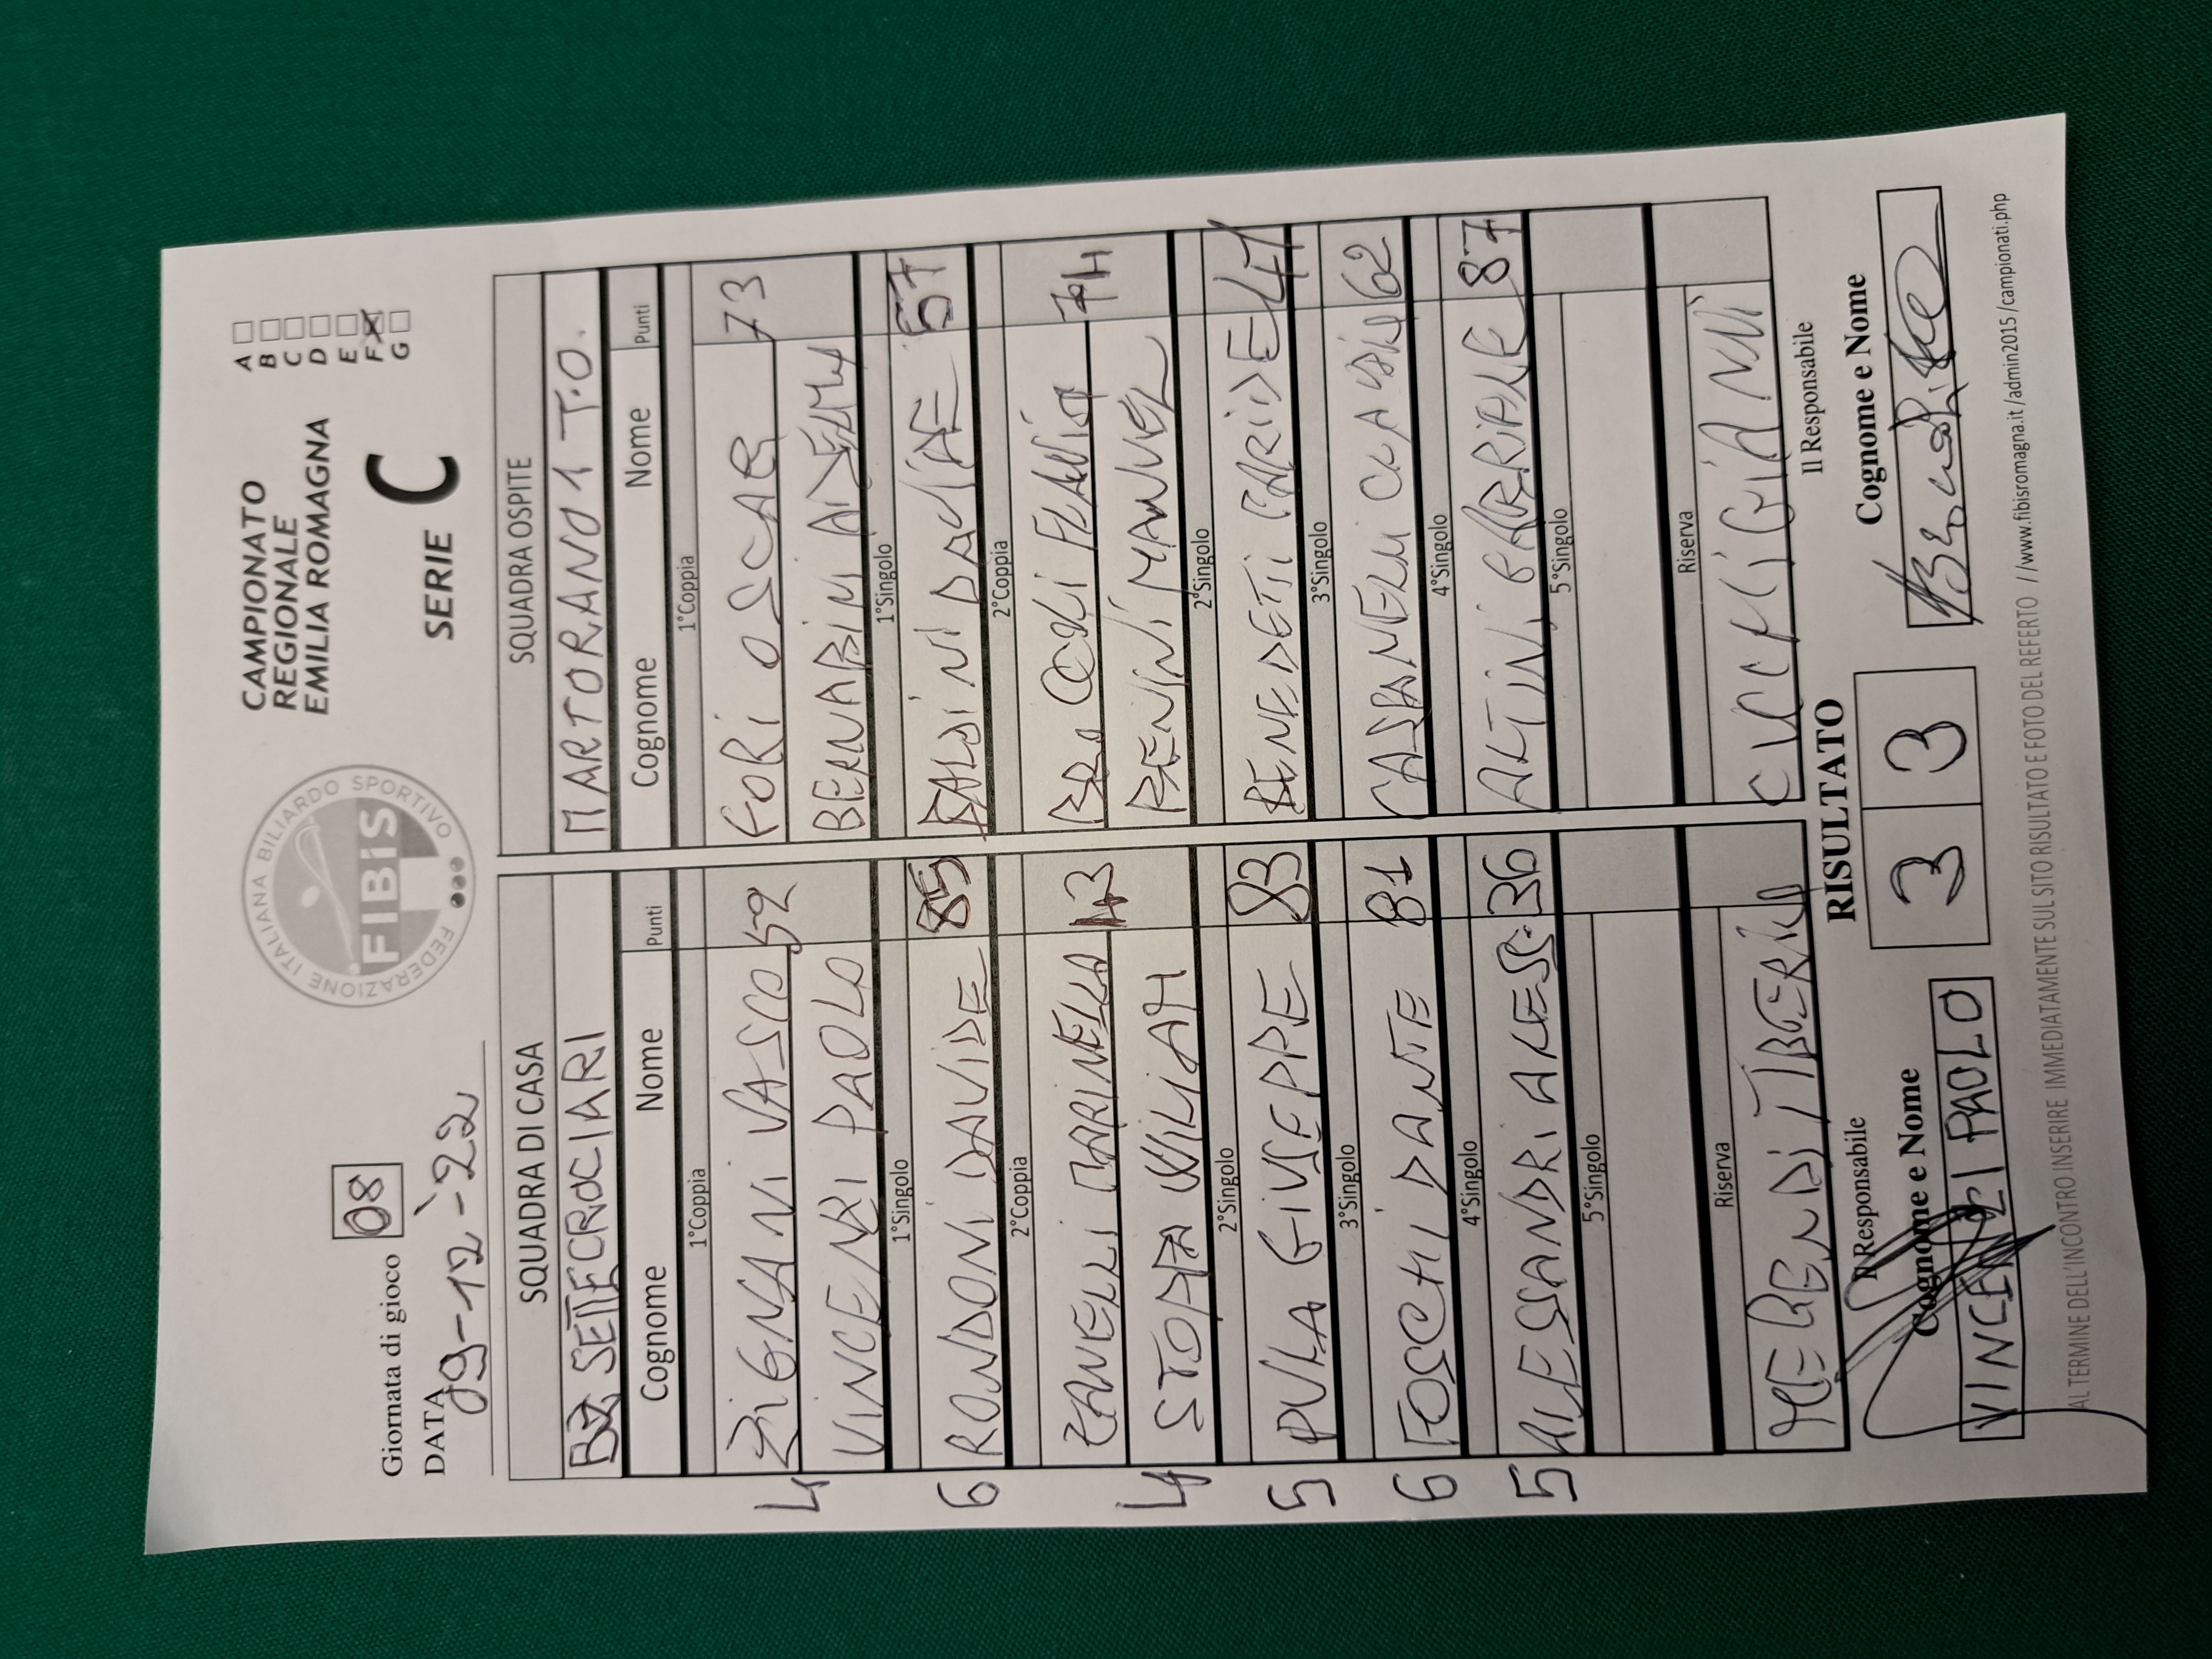 Giornata di gioco 08
DATA 09-12-22
FEDERAZIONE ITALIANA BILIARDO SPORTIVO
FIBiS
CAMPIONATO
REGIONALE
EMILIA ROMAGNA
SERIE C
A
B
C
D
E
F X
G
SQUADRA DI CASA
SETTECROCIARI
Cognome Nome Punti
1°Coppia
4 ZIGNANI VASCO 52
VINCENZI PAOLO
1°Singolo
6 RONDONI DAVIDE 85
2°Coppia
ZANELLI MARINELLA 43
4 STOPPA WILIAM
2°Singolo
5 PULA GIUSEPPE 83
3°Singolo
6 FOSCHI DANTE 81
4°Singolo
5 ALESSANDRI ALESS. 36
5°Singolo
Riserva
SQUADRA OSPITE
MARTORANO 1 T.O.
Cognome Nome Punti
1°Coppia
FORI OSCAR 73
BERNABINI
1°Singolo
BALDINI DAVIDE 57
2°Coppia
FLAVIO 74
BENINI MANUEL
2°Singolo
BENEDETTI PARIDE 47
3°Singolo
62
4°Singolo
ALTINI GABRIELE 87
5°Singolo
Riserva
GIANNI
RISULTATO
3 3
Il Responsabile
Cognome e Nome
VINCENZI PAOLO
Il Responsabile
Cognome e Nome
AL TERMINE DELL'INCONTRO INSERIRE IMMEDIATAMENTE SUL SITO RISULTATO E FOTO DEL REFERTO //www.fibisromagna.it /admin2015 /campionati.php